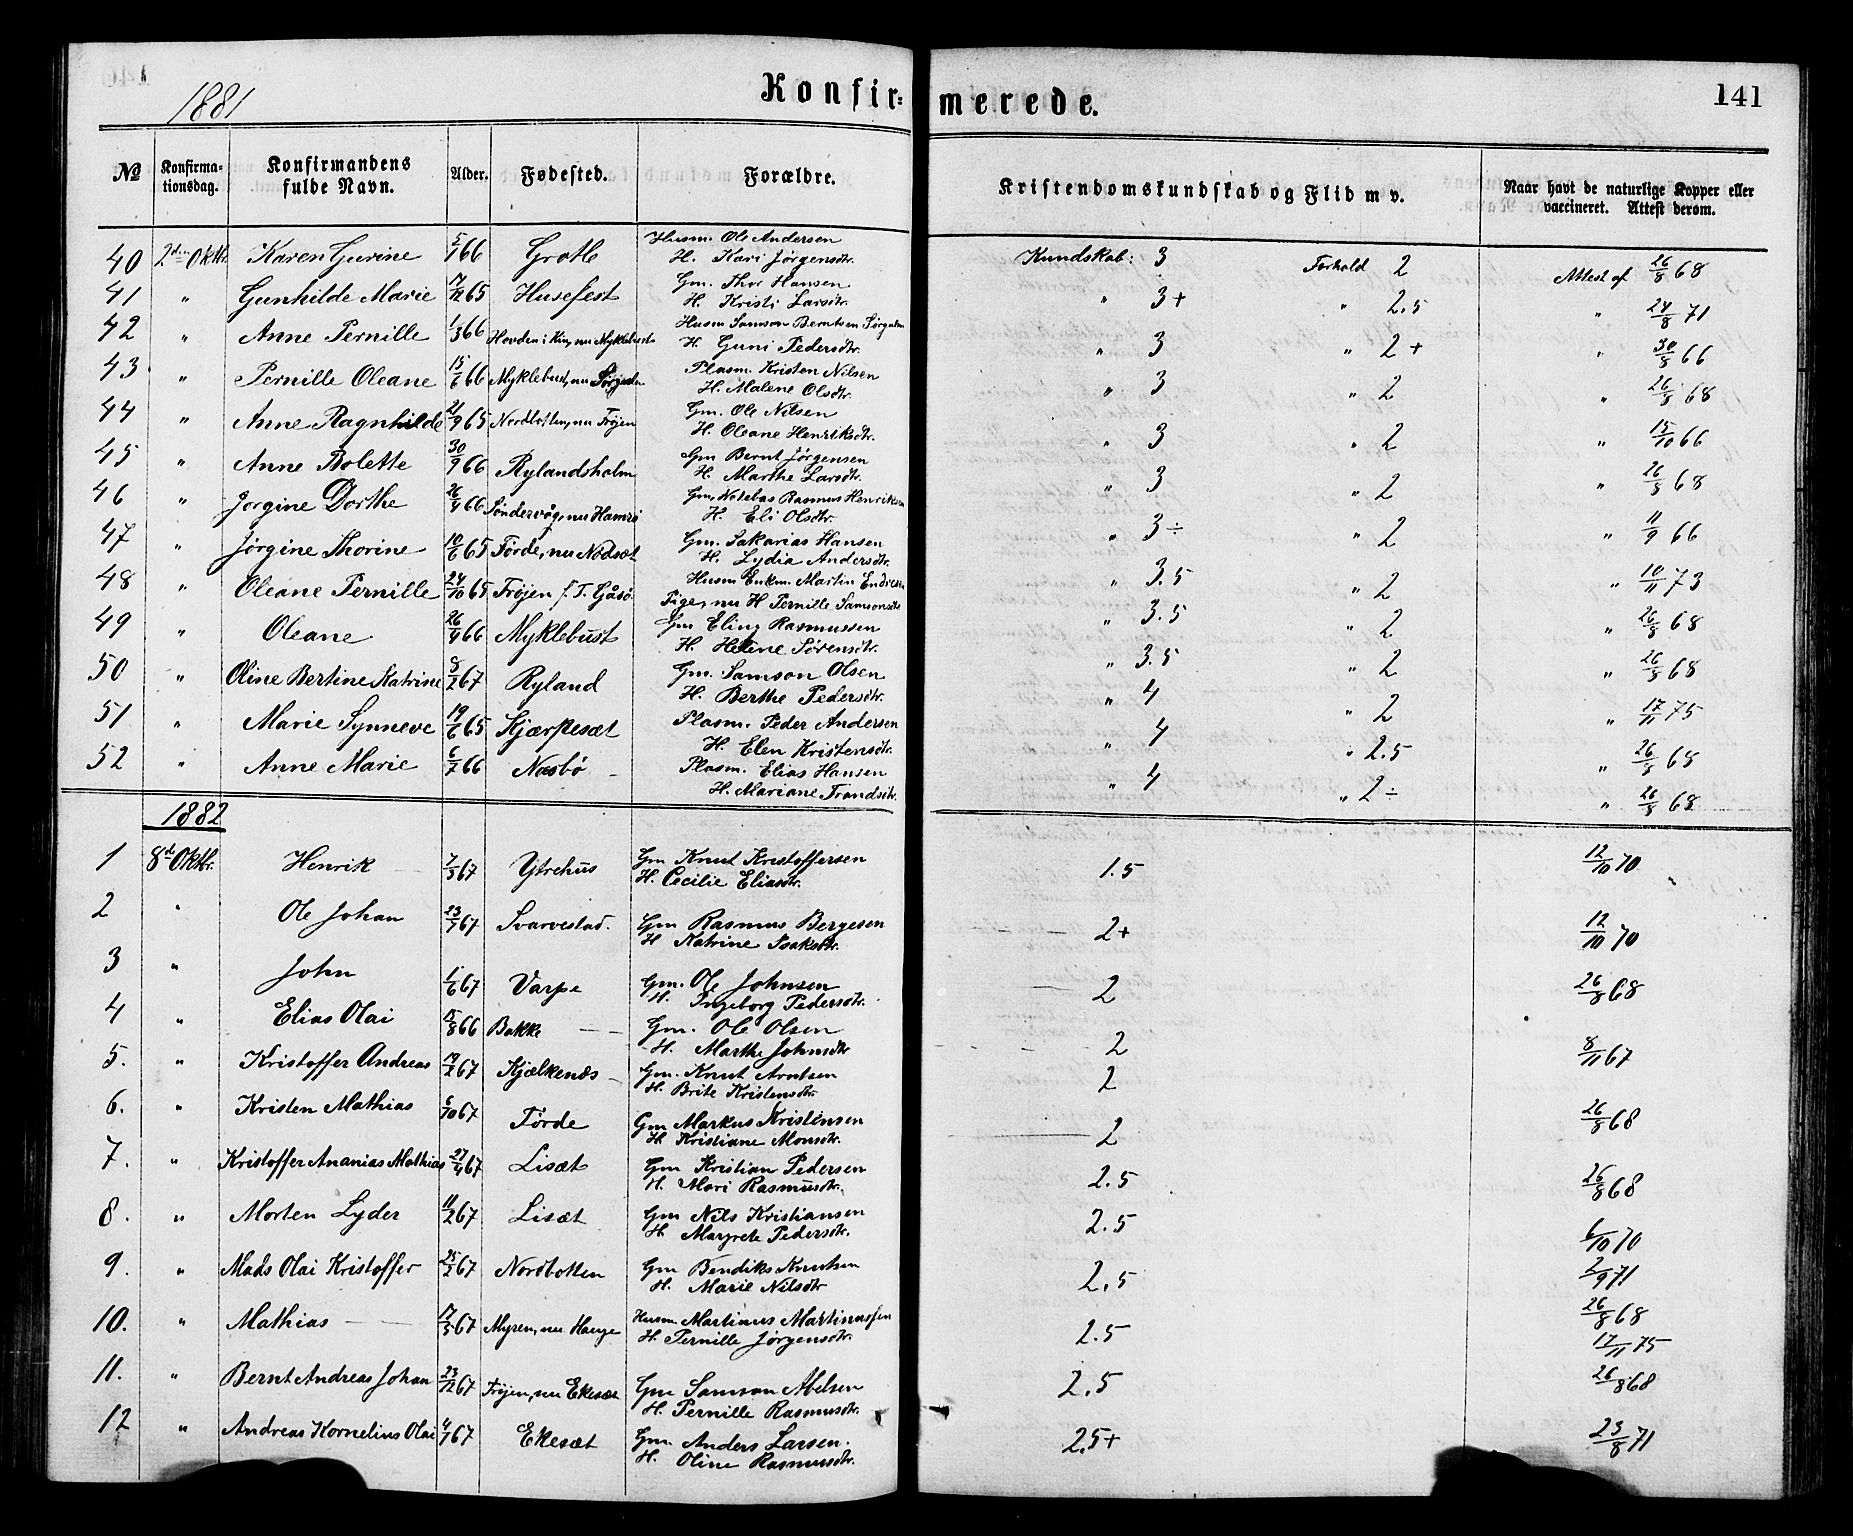 1881
Konfir=
merede.
141
№
Konfirma-
tionsdag.
Konfirmandens
fulde Navn.
Alder.
Fødested.
Forældre.
Kristendomskundskab og Flid m v.
Naar havt de naturlige Kopper eller
vaccineret. Attest derom.
40 2den Oktbr. Karen Gurine 5/1 66 Grotle Husm. Ole Andersen
H. Kari Jørgensdtr. Kundskab: 3 Forhold 2 Attest af 26/8 68
41 " Gunhilde Marie 7/12 65 Husefest Gm. Thor Hansen
H. Kristi Larsdtr. " 3+ " 2.5 " 24/8 71
42 " Anne Pernille 1/3 66 Hovden i Kin, nu Myklebust Husm Samson Berntsen Sørgulen
H. Guni Pedersdtr. " 3 " 2+ " 30/8 66
43 " Pernille Oleane 15/6 66 Myklebust, nu Sørgulen Plasm. Kristen Nilsen
H. Malene Olsdtr. " 3 " 2 " 26/8 68
44 " Anne Ragnhilde 21/9 65 Nordbotten, nu Frøjen Gm. Ole Nilsen
H. Oleane Henriksdtr. " 3 " 2 " 15/10 66
45 " Anne Bolette 30/9 66 Rylandsholm Gm Bernt Jørgensen
H. Marthe Larsdtr. " 3 " 2 " 26/8 68
46 " Jørgine Dorthe 26/4 66 Søndervåg, nu Hamrø Gm, Notebas Rasmus Henriksen
H. Eli Olsdtr. " 3÷ " 2 " 11/9 66
47 " Jørgine Thorine 10/6 65 Førde, nu Nødsæt Gm. Sakarias Hansen
H. Lydia Andersdtr. " 3.5 " 2 " 10/11 73
48 " Oleane Pernille 24/10 65 Frøjen f. T. Gåsø Husm Enkm. Martin Endresen
Pige, nu H Pernille Samsonsdtr " 3.5 " 2 " 26/8 68
49 " Oleane 26/4 66 Myklebust Gm Eling Rasmussen
H. Helene Sørensdtr. " 3.5 " 2 " 26/8 68
50 " Oline Bertine Katrine 8/2 67 Ryland Gm. Samson Olsen
H. Berthe Pedersdtr. " 4 " 2 " 17/11 75
51 " Marie Synneve 19/6 65 Kjærpesæt Plasm. Peder Andersen
H. Elen Kristensdtr. " 4 " 2.5 " 26/8 68
52 " Anne Marie 6/7 66 Næsbø Plasm. Elias Hansen
H. Mariane Trondsdtr. " 4 " 2÷ " 26/8 68
1882
1 8de Oktbr. Henrik 7/3 67 Ytrehus Gm Knut Kristoffersen
H. Cecilie Eliasdtr. 1.5 12/10 70
2 " Ole Johan 23/7 67 Svarvestad. Gm Rasmus Bergesen
H Katrine Isaksdtr. 2+ 12/10 70
3 " John 1/6 67 Varpe Gm. Ole Johnsen
H. Ingeborg Pedersdtr. 2 26/8 68
4 " Elias Olai 15/8 66 Bakke Gm. Ole Olsen
H. Marthe Johnsdtr 2 8/11 67
5. " Kristoffer Andreas 19/2 67 Kjælkenæs Gm. Knut Arntsen
H. Brite Kristensdtr. 2
6. " Kristen Mathias 6/10 67 Førde Gm Markus Kristensen
H Kristiane Monsdtr. 2 26/8 68
7. " Kristoffer Ananias Mathias 27/4 67 Lisæt Gm Kristian Pedersen
H. Mari Rasmusdtr. 2.5 26/8 68
8. " Morten Lyder 11/2 67 Lisæt Gm Nils Kristiansen
H Margrete Pedersdtr. 2.5 6/10 70
9. " Mads Olai Kristoffer 25/2 67 Nordbotten Gm Bendiks Knutsen
H. Marie Nilsdtr 2.5 2/9 71
10. " Mathias 17/3 67 Myren, nu Hauge Husm. Martinus Martinussen
H. Pernille Jørgensdtr. 2.5 26/8 68
17/11 75
11. " Bernt Andreas Johan 23/12 67 Frøjen, nu Ekesæt Gm Samson Abelsen
H. Pernille Rasmusdtr. 2.5 26/8 68
12 " Andreas Kornelius Olai 4/1 67 Ekesæt Gm. Anders Larsen.
H. Oline Rasmusdtr. 2.5+ 23/8 71